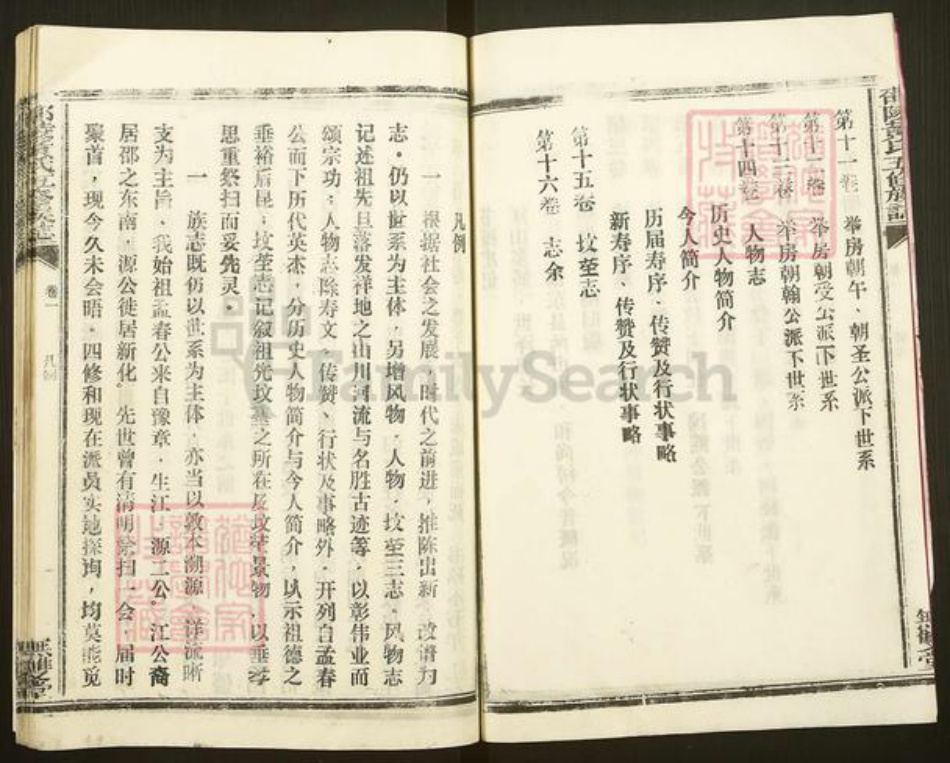 第十一卷 举房朝午、朝圣公派下世系
第十二卷 举房朝受公派下世系
第十三卷 举房朝翰公派下世系
第十四卷 人物志
历史人物简介
今人简介
历届寿序、传赞及行状事略
新寿序、传赞及行状事略
第十五卷 坟茔志
第十六卷 志余
凡例
一 根据社会之发展,时代之前进,推陈出新,改谱为
志。仍以世系为主体,另增风物,人物,坟茔三志。风物志
记述祖先旦落发祥地之山川河流与名胜古迹等,以彰伟业而
颂宗功;人物志除寿文、传赞、行状及事略外,开列自孟春
公而下历代英杰,分历史人物简介与今人简介,以示祖德之
垂裕后昆;坟茔志记叙祖先坟墓之所在及坟茔景物,以垂孝
思重祭扫而妥先灵。
一 族志既仍以世系为主体,亦当以敦本溯源,详流晰
支为主旨、我始祖孟春公来自豫章,生江、源二公。江公裔
居邵之东南,源公徙居新化。先世曾有清明除扫一会,届时
聚首,现今久未会晤。四修和现在派员实地探询,均莫能觅
卷一
凡例
FamilySearch